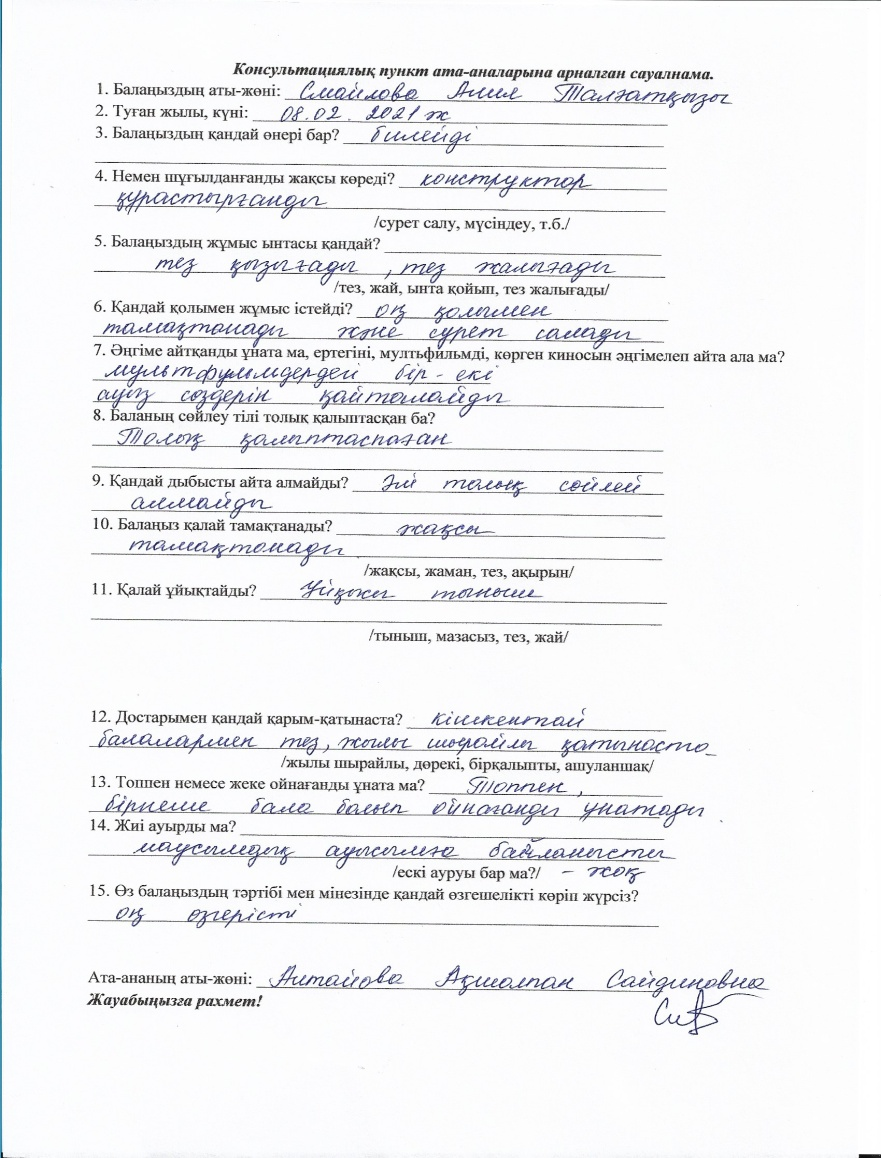 Консультациялық пункт ата-аналарына арналған сауалнама.
1. Балаңыздың аты-жөні: Смайлова Алия Талғатқызы
2. Туған жылы, күні: 08.02.2021 ж
3. Балаңыздың қандай өнері бар? билейді
4. Немен шұғылданғанды жақсы көреді? конструктор
құрастырғанды
/сурет салу, мүсіндеу, т.б./
5. Балаңыздың жұмыс ынтасы қандай?
тез қызығады, тез жалығады
/тез, жай, ынта қойып, тез жалығады/
6. Қандай қолымен жұмыс істейді? оң қолымен
тамақтанады және сурет салады
7. Әңгіме айтқанды ұната ма, ертегіні, мултьфильмді, көрген киносын әңгімелеп айта ала ма?
мультфильмдердегі бір-екі
ауыз сөздерін қайталайды
8. Баланың сөйлеу тілі толық қалыптасқан ба?
Толық қалыптаспаған
9. Қандай дыбысты айта алмайды? Әлі толық сөйлей
алмайды
10. Балаңыз қалай тамақтанады? жақсы
тамақтанады
/жақсы, жаман, тез, ақырын/
11. Қалай ұйықтайды? Ұйқысы тыныш
/тыныш, мазасыз, тез, жай/
12. Достарымен қандай қарым-қатынаста? кішкентай
балалармен тез, жылы шырайлы қатынаста
/жылы шырайлы, дөрекі, бірқалыпты, ашуланшақ/
13. Топпен немесе жеке ойнағанды ұната ма? Топпен,
бірнеше бала болып ойнағанды ұнатады
14. Жиі ауырды ма?
маусымдық ауысымға байланысты
/ескі ауруы бар ма?/ - жоқ
15. Өз балаңыздың тәртібі мен мінезінде қандай өзгешелікті көріп жүрсіз?
оң өзгерісті
Ата-ананың аты-жөні: Алтайова Ақшолпан Сайдиновна
Жауабыңызға рахмет!